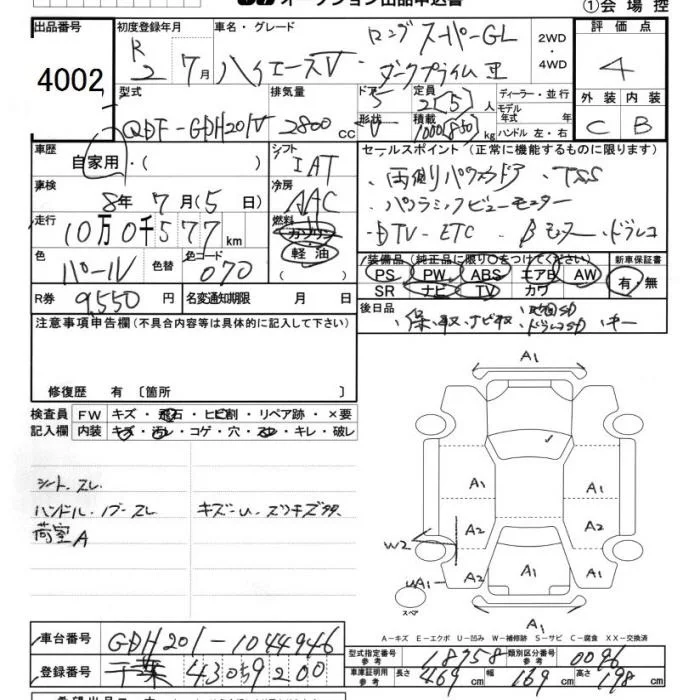 オークション出品申込書
①会場控
出品番号 初度登録年月 車名・グレード ロング スーパーGL 2WD・4WD 評価点
4002 R2 7月 ハイエースV ダークプライムⅡ 4
型式 排気量 ドア 5 定員 2(5)人 ディーラー・並行 外装 内装
QDF-GDH201V 2800cc 形状 V 積載 1000(850)kg モデル年式 年 ハンドル 左・右 C B
車歴 自家用・( ) シフト IAT セールスポイント (正常に機能するものに限ります)
車検 8年7月(5日) 冷房 AAC ・両側パワスラドア ・TSS
走行 10万0千577km 燃料 ガソリン 軽油 ( ) ・パノラミックビューモニター
・DTV・ETC ・Bモニター・ドラレコ
色 パール 色替 色コード 070 装備品 (純正品に限り○をつけてください) 新車保証書
PS PW ABS エアB AW 有・無
SR ナビ TV カワ
R券 9,550円 名変通知期限 月 日 後日品 ・保・取・ナビ取・地図SD・ドラレコSD・キー
注意事項申告欄 (不具合内容等は具体的に記入して下さい)
修復歴 有 〔箇所 〕
検査員 FW キズ・飛石・ヒビ割・リペア跡・×要
記入欄 内装 キズ・汚レ・コゲ・穴・スレ・キレ・破レ
シート・スレ
ハンドル・ノブ・スレ キズ・U・スリキズ多々
荷室A
A1
A1 A1
A2 A2
W2
A2 A1 A1
UA1
スペア A1
A-キズ E-エクボ U-凹み W-補修跡 S-サビ C-腐食 XX-交換済
車台番号 GDH201-1044946
登録番号 千葉 430 ち 9200
型式指定番号 参考 18758 類別区分番号 参考 0096
車庫証明用 参考 長さ 469cm 幅 169cm 高さ 198cm